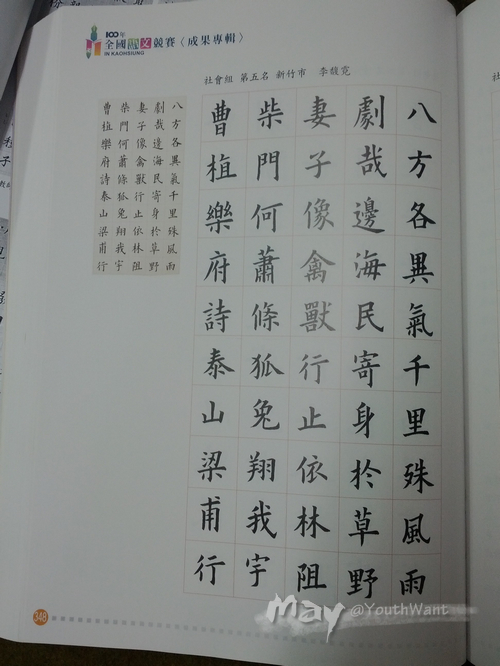 100年
全國語文競賽〈成果專輯〉
IN KAOHSIUNG
社會組 第五名 新竹市 李馥寬
八方各異氣千里殊風雨
劇哉邊海民寄身於草野
妻子像禽獸行止依林阻
柴門何蕭條狐兔翔我宇
曹植樂府詩泰山梁甫行
八方各異氣千里殊風雨
劇哉邊海民寄身於草野
妻子像禽獸行止依林阻
柴門何蕭條狐兔翔我宇
曹植樂府詩泰山梁甫行
348
May @YouthWant